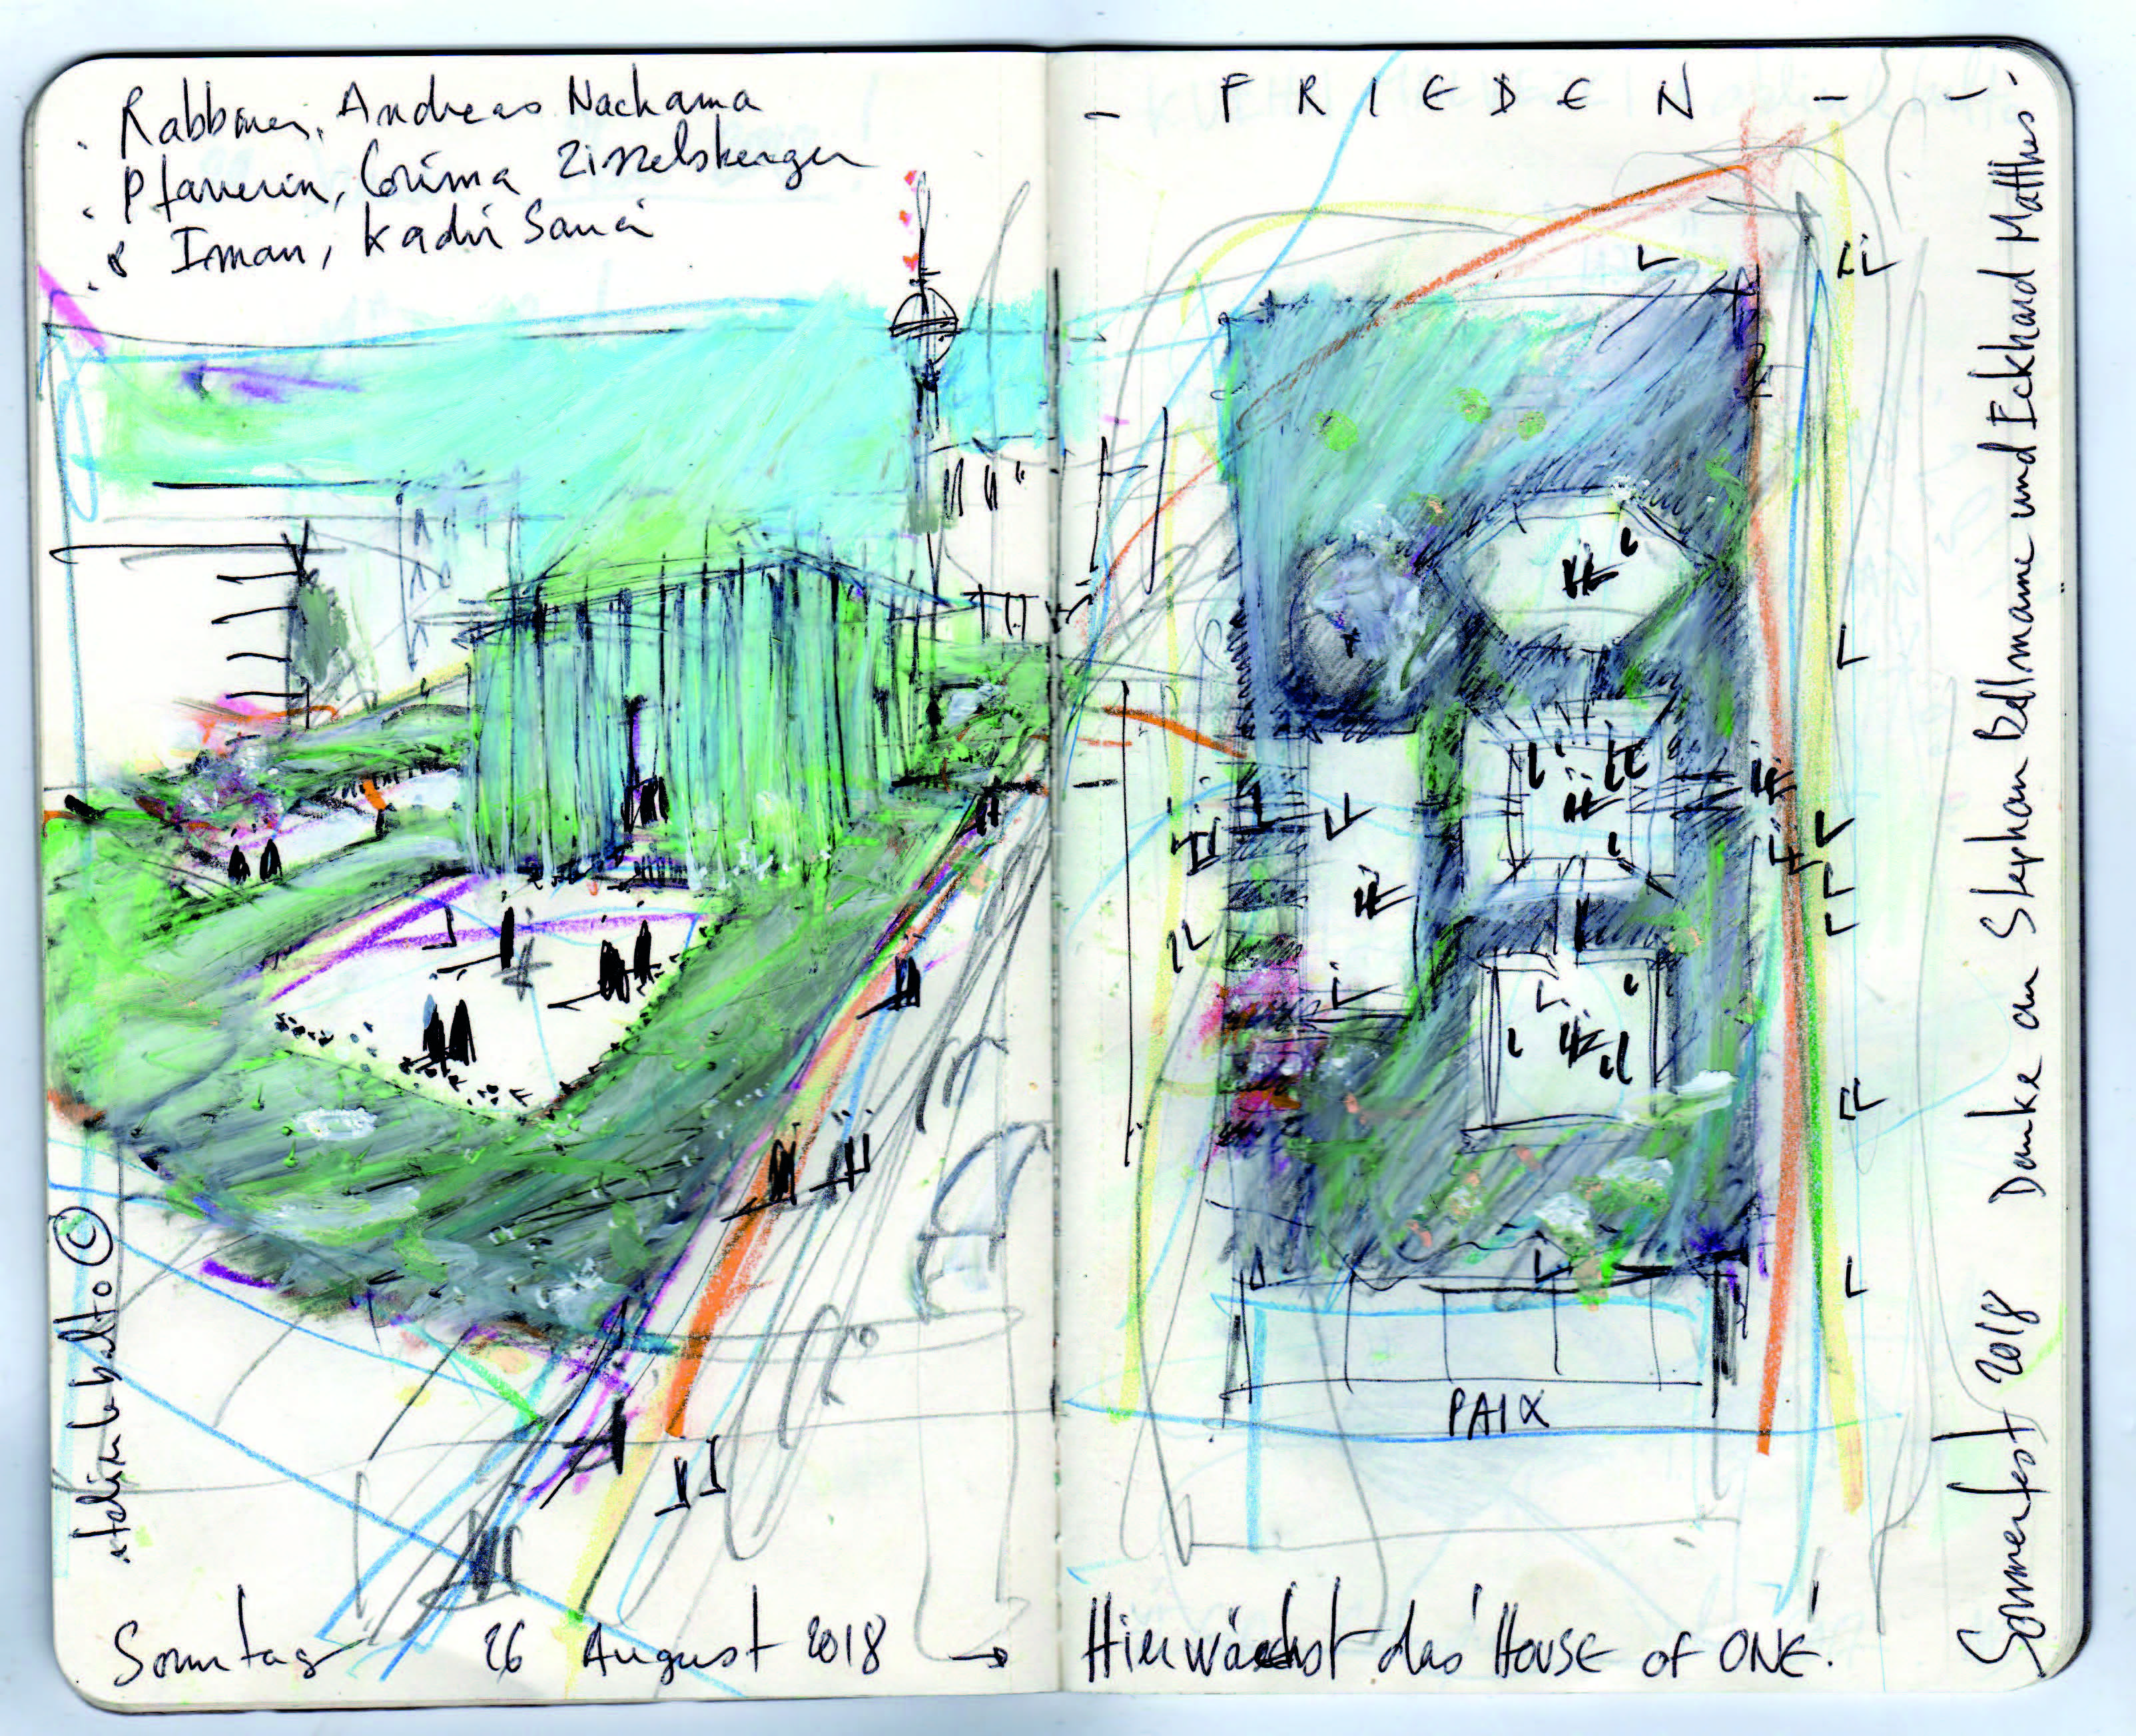 Rabbiner, Andreas Nachama
Pfarrerin, Corinna Zisselsberger
& Iman, Kadir Sanci
atelier le balto ©
Sonntag 26 August 2018 →
– F R I E D E N –
PAIX
Hier wächst das 'HOUSE OF ONE'.
Sommerfest 2018 Danke an Stephan Bellmann und Eckhard Matthes